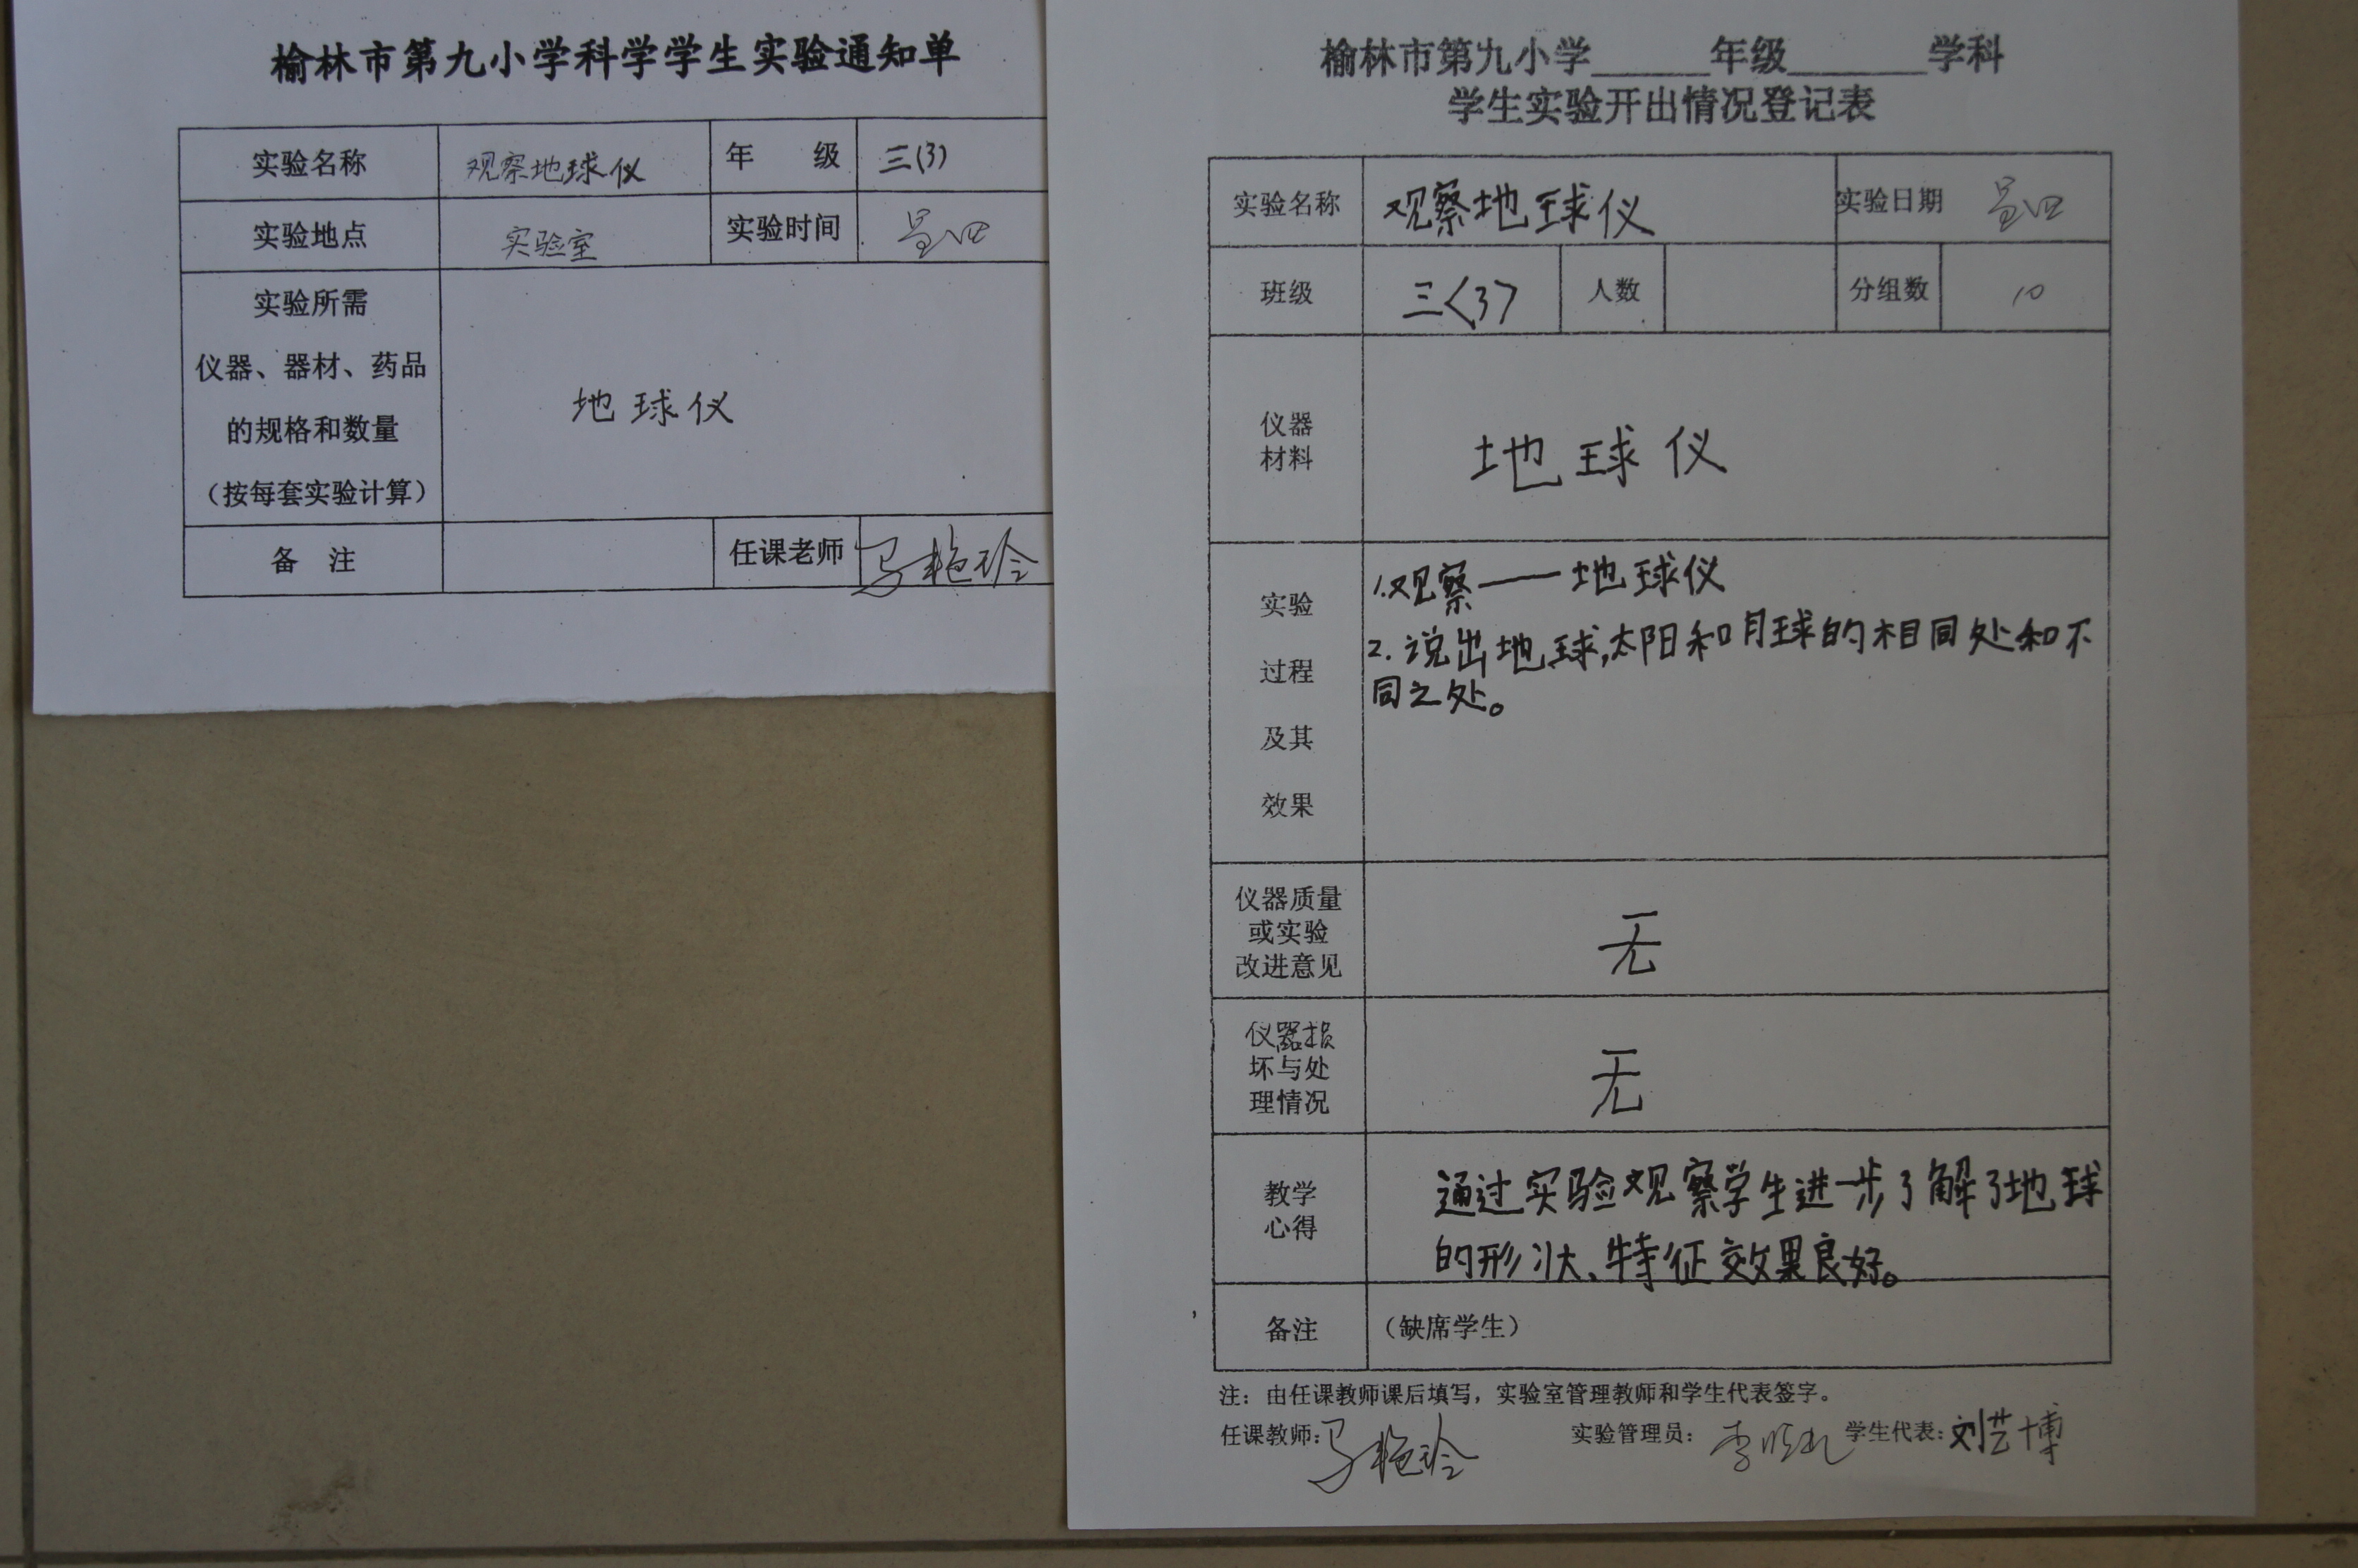 榆林市第九小学科学学生实验通知单
实验名称 观察地球仪 年 级 三(3)
实验地点 实验室 实验时间
实验所需
仪器、器材、药品
的规格和数量
(按每套实验计算)
地球仪
备 注 任课老师 马艳玲
榆林市第九小学______年级_______学科
学生实验开出情况登记表
实验名称 观察地球仪 实验日期
班级 三<3> 人数 分组数 10
仪器
材料
地球仪
实验
过程
及其
效果
1.观察——地球仪
2.说出地球,太阳和月球的相同处和不
同之处。
仪器质量
或实验
改进意见
无
仪器损
坏与处
理情况
无
教学
心得
通过实验观察学生进一步了解了地球
的形状、特征效果良好。
备注 (缺席学生)
注:由任课教师课后填写,实验室管理教师和学生代表签字。
任课教师:马艳玲 实验管理员: 学生代表:刘艺博